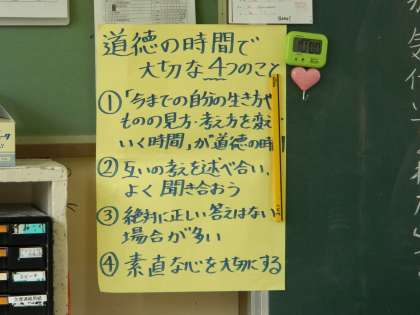 道徳の時間で
大切な4つのこと
①「今までの自分の生き方や
ものの見方・考え方を変え
いく時間」が道徳の時
②互いの考えを述べ合い、
よく聞き合おう
③絶対に正しい答えはない
場合が多い
④素直な心を大切にする